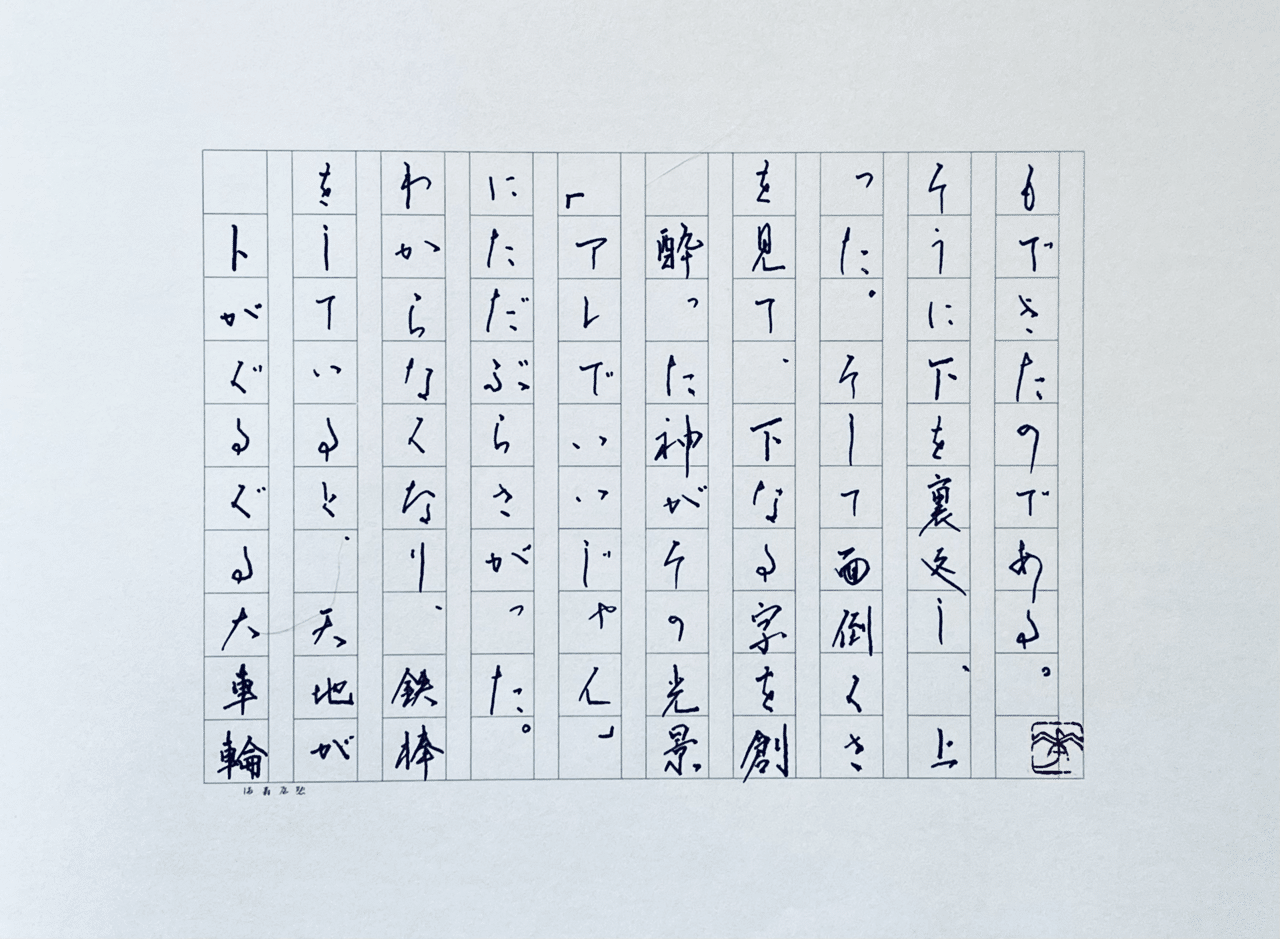 トがぐるぐる大車輪
をしていると、天地が
わからなくなり、鉄棒
にただぶらさがった。
「アレでいいじゃん」
酔った神がその光景
を見て、下なる字を創
った。そして面倒くさ
そうに下を裏返し、上
もできたのである。